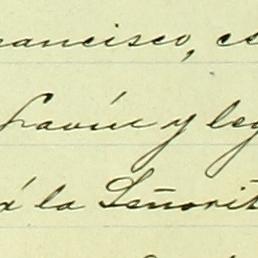 rancisco, es
Gavín y leg
á la Señorit